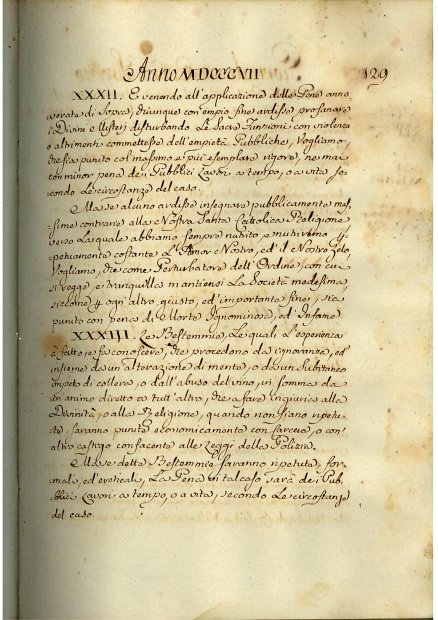 Anno MDCCCVII
129
XXXII. E venendo all'applicazione delle Pene anno-
verate di Sopra, chiunque con empio fine ardisse profanare
i Divini Misterj disturbando Le Sacre Funzioni con violenza
o altrimenti commettesse dell'empietà Pubbliche, Vogliamo,
che sia punito col massimo e più esemplare rigore, ne mai
con minor pena de i Pubblici Lavori a tempo, o a vita se-
condo Le circostanze del caso.
Ma se alcuno ardisse insegnare pubblicamente mas-
sime contrarie alla Nostra Santa Cattolica Religione
verso La quale abbiamo sempre nutrito e nutriremo p-
petuamente costante L'Amor Nostro, ed il Nostro Zelo,
Vogliamo, che come Perturbatore dell'Ordine, con cui
si regge, e tranquilla mantiensi La Società medesima,
siccome p ogni altro giusto, ed importante fine, sia
punito con pena di Morte Ignominiosa, ed Infame
XXXIII. Le Bestemmie, Le quali L'esperienza
à fatto, e fa conoscere, che procedono da ignoranza, ed
insieme da un'alterazione di mente, o da un Subitaneo
impeto di collera, o dall'abuso del vino, in somma da
un animo diretto a tutt'altro, che a fare ingiuria alla
Divinità, o alla Religione, quando non siano ripetu-
te, saranno punite economicamente con carcere, o con
altro castigo confacente alle Leggi della Polizia.
Ma se dette Bestemmie saranno ripetute, for-
mali, ed ereticali, La Pena in tal caso sarà de i Pub-
blici Lavori a tempo, o a vita, secondo Le circostanze
del caso.